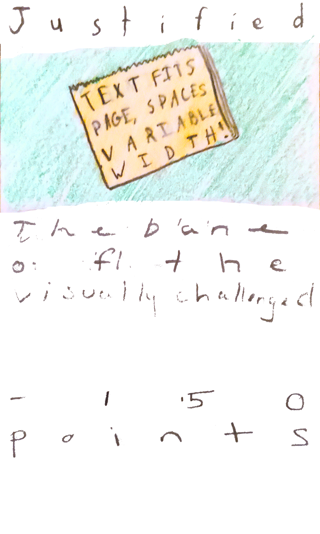 Justified
TEXT FITS
PAGE, SPACES
VARIABLE
WIDTH!
The bane
of the
visually challenged
-150
points